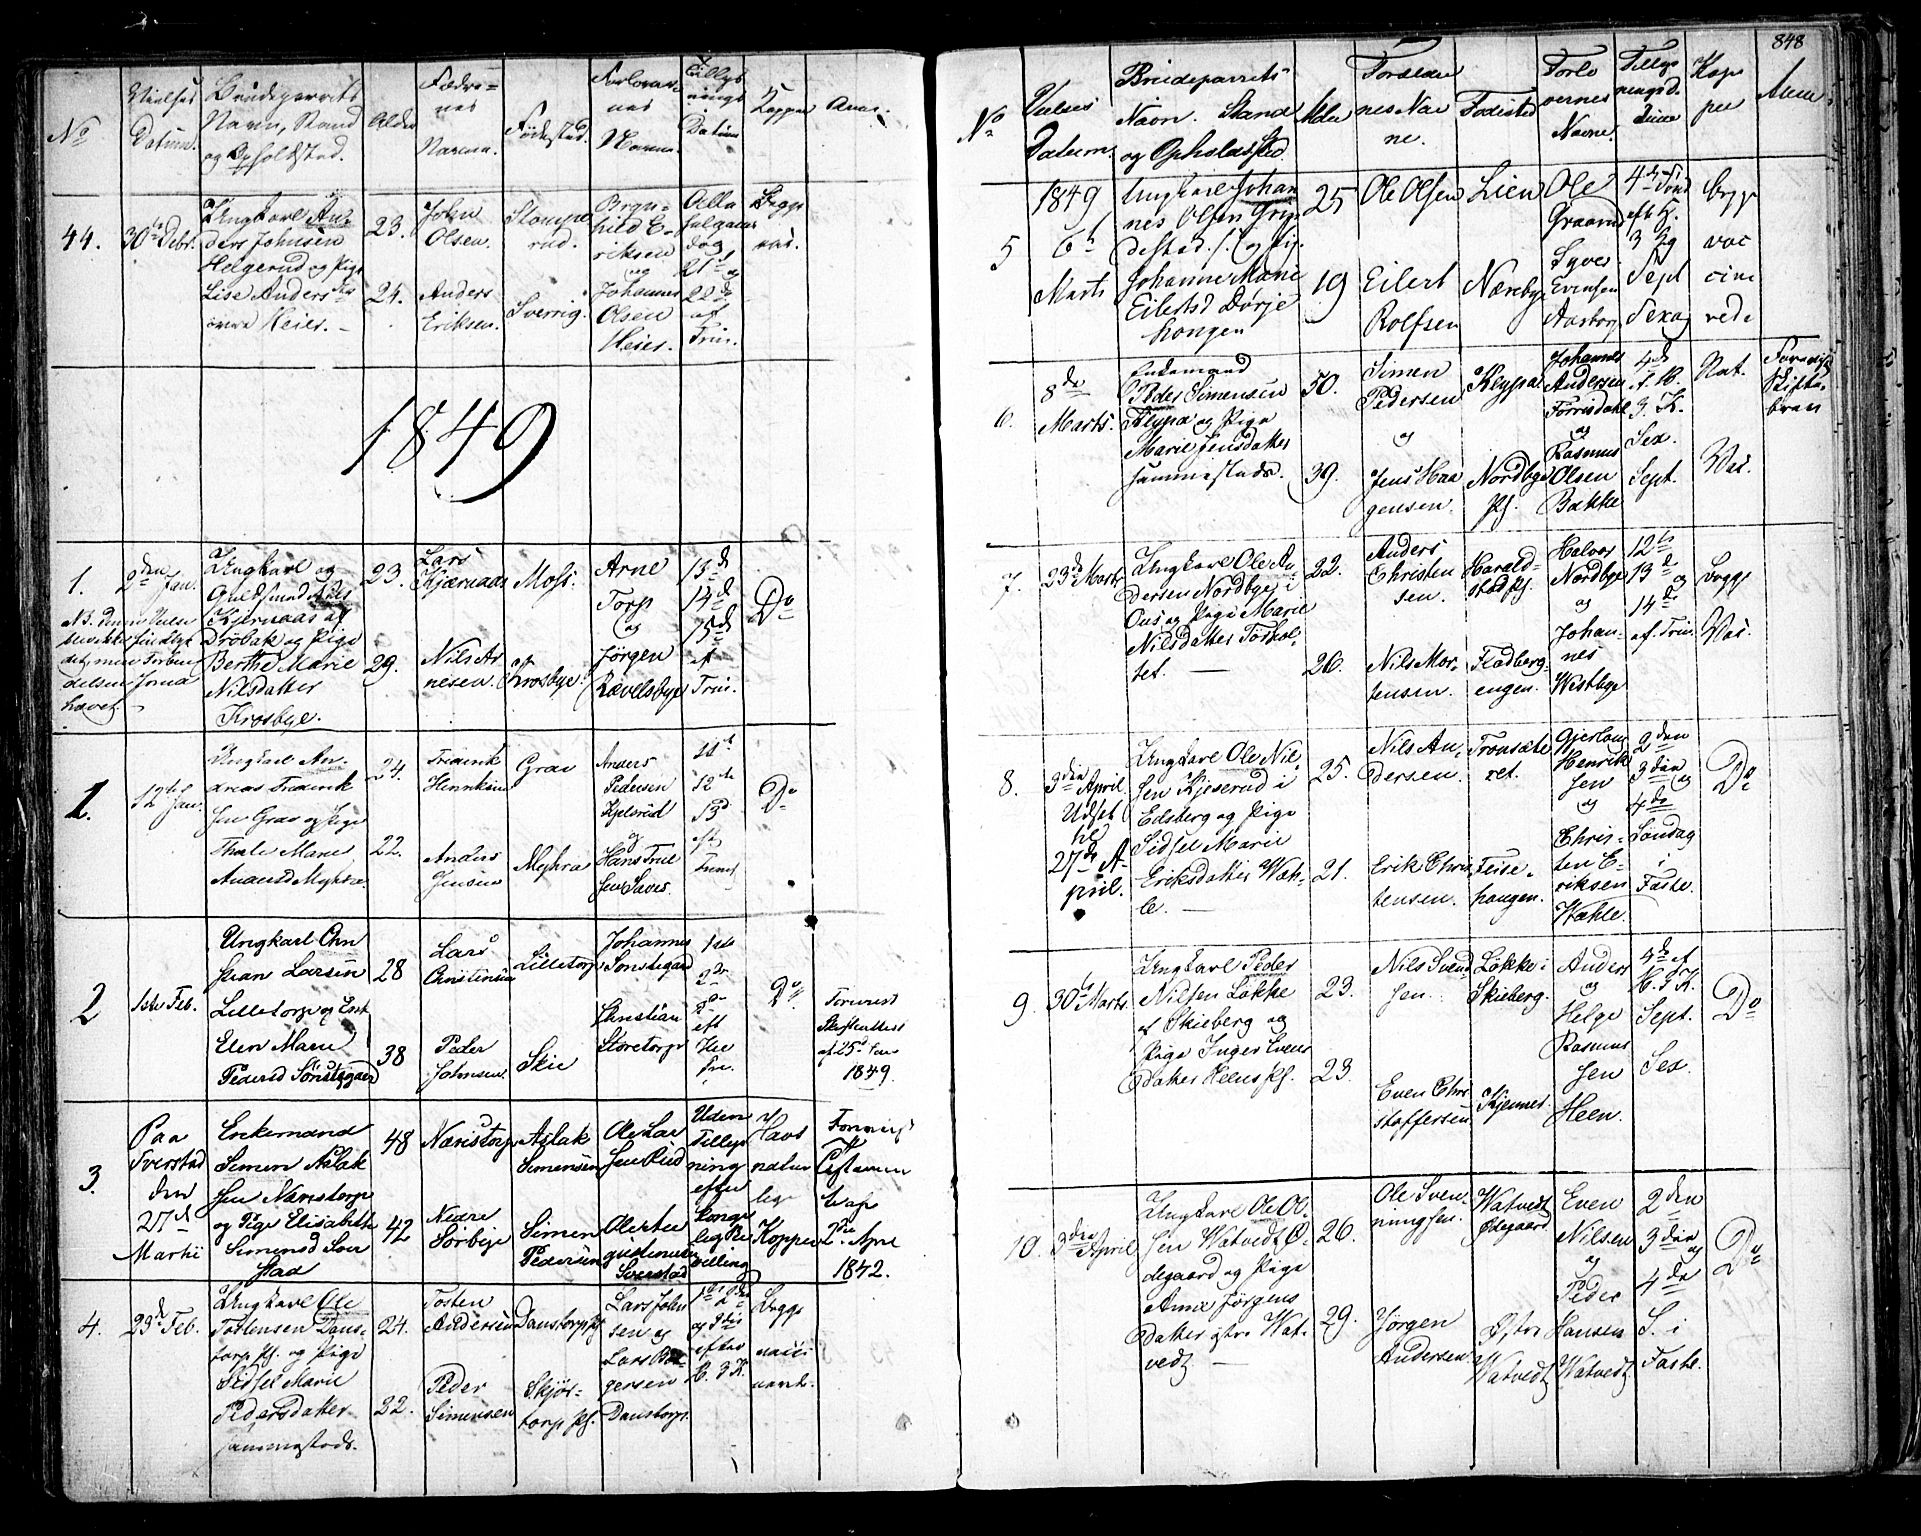 848
No
Vielses Datum.
Brudeparrets Navn, Stand og Opholdsted.
Alder
Fædrenes Navne.
Fødested.
Forlovernes Navne.
Tillysnings Datum
Kopper
Anm.
44.
30te Debr.
Ungkarl Anders Johnsen
Helgerud og Pige
Lise Andersda
Heier.
23.
24.
John Olsen.
Anders Eriksen.
Sverrig.
Eriksen
og
Johannes
Olsen
Heier.
21de og
22de
af
Trin.
1849
1.
2den Jan.
Ungkarl og
Guldsmed
Kjærnaas af
Drøbak og Pige
Berthe Marie
Nilsdatter
Krosbye.
23.
29.
Lars
Kjærnaas
Nils Arnesen.
Moss.
Krosbye.
Arne
Torp
og
Jørgen
Rævelsbye
13de
14de
15de
af
Trin.
Do
1.
12te Jan.
Ungkarl Andreas Frederiksen
Grav og Pige
Thale Marie
Andersd Myhra
24.
22.
Frederik
Henriksen
Anders
Jensen
Grav
Myhra
Anders
Pedersen
og
Hans
11te
12te
13de
eft
Trinit
Do
2
1ste Feb.
Ungkarl Christian Larsen
Lilletorp og Enk
Elen Marie
Pedersd Sønstegaard
28
38
Lars
Christensen
Peder
Johnsen.
Lilletorp
Skie
Johannes
Sønstegaard
Christian
Storetorp
1ste
2de
3de
eft
Do
Forevist
Skifteattest
af 25de Jan
1849.
3.
Paa
Sverstad
den
27de
Martii
Enkemand
Simen Aslaksen
Næristorp
og Pige Elisabeth
Simensd Sverstad
48
42
Næristorp
Nedre
Sørbye
Aslak
Simensen
Simen
Pedersen
Ole Larsen
Rud
Ole
Sverstad
Uden
Tillysning
efter
Kongelig Bevilling
Havt
naturlige
Kopper
Forevist
2de April
1842.
4.
23de Feb.
Ungkarl Ole
Tostensen Danstorp
Pf. og Pige
Sidsel Marie
Pedersdatter
sammestæds.
24.
22.
Tosten
Andersen
Peder
Simensen
Danstorp Pf
Skjørtorp Pf.
Lars Johnsen
og
Lars Børgersen
Danstorp.
1ste 2den
og 3die
efter
H. 3 K.
No
Vielses Datum.
Brudeparrets Navn. Stand og Opholdssted
Alder
Forældrenes Navne.
Fødested
Forlovernes Navne.
Tillysningsd.
Koppe
Anm.
5
1849
6te
Marts
Ungkarl Johannes Olsen
og Pige
Johanne Marie
Eilertsd Dørjehougen
25
19
Ole Olsen
Eilert
Rolfsen
Lien
Nærebye
Ole
Graanud
Syver
Evensen
Aasborg
4de Sønd
eft H.
3 Kg
Sept
Sexag
Copp
vaccinerede
6.
8de
Marts.
Enkemand
Peder Simensen
Kleypa og Pige
Marie Jensdatter
sammestæds.
50.
39.
Simen
Pedersen
og
Jens Haagensen.
Kleypa
Nordbye
Pf.
Johannes
Andersen
Torrisdahl
og
Rasmus
Olsen
Bakke
4de
f. H.
3. K.
Sex.
Sept.
Nat.
Vac.
Forevist
Skiftebrev
7.
23de Marts
Ungkarl Ole Andersen
Nordbye i
Ous og Pige Marie
Nilsdatter Torholtet.
22.
26.
Anders
Christensen.
Nils Mortensen.
Haraldstad Pf.
Fladbergengen.
Halvor
Nordbye
og
Johannes
Westbye
12te
13de
og
14de
af Trin.
Kopp
Vac.
8.
3die April
Udsat
til
27de April.
Ungkarl Ole Nilsen
Kjeserud i
Edsberg og Pige
Sidsel Marie
Eriksdatter Wahle.
25.
21.
Nils Andersen.
Erik Christensen.
Feisehaugen.
Gjerløug
Henriksen
og
Christen Eriksen
Wahle.
2den
3die og
4de
Søndag
i
Faste.
Do
9.
30te Marts.
Ungkarl Peder
Nilsen Løkke
af Skieberg og
Pige Inger Evensdatter
Heens Pf.
23.
23.
Nils Svendsen
Even Christoffersen
Løkke i
Skieberg.
Kjennes.
Anders
og
Helge
Rasmussen
Heen.
4de af
H. 3 K.
Sept.
Sex.
Do
10.
3die April
Ungkarl Ole Olsen
Watvedt Ødegaard
og Pige
Anne Jørgensdatter
østre Watvedt
26.
29.
Ole Svenningsen.
Jørgen
Andersen.
Watvedt
Ødegaard
Østre
Watvedt
Even
Nilsen
og
Peder
Hansen
Watvedt
2den
3die og
4de
S. i
Faste.
Do